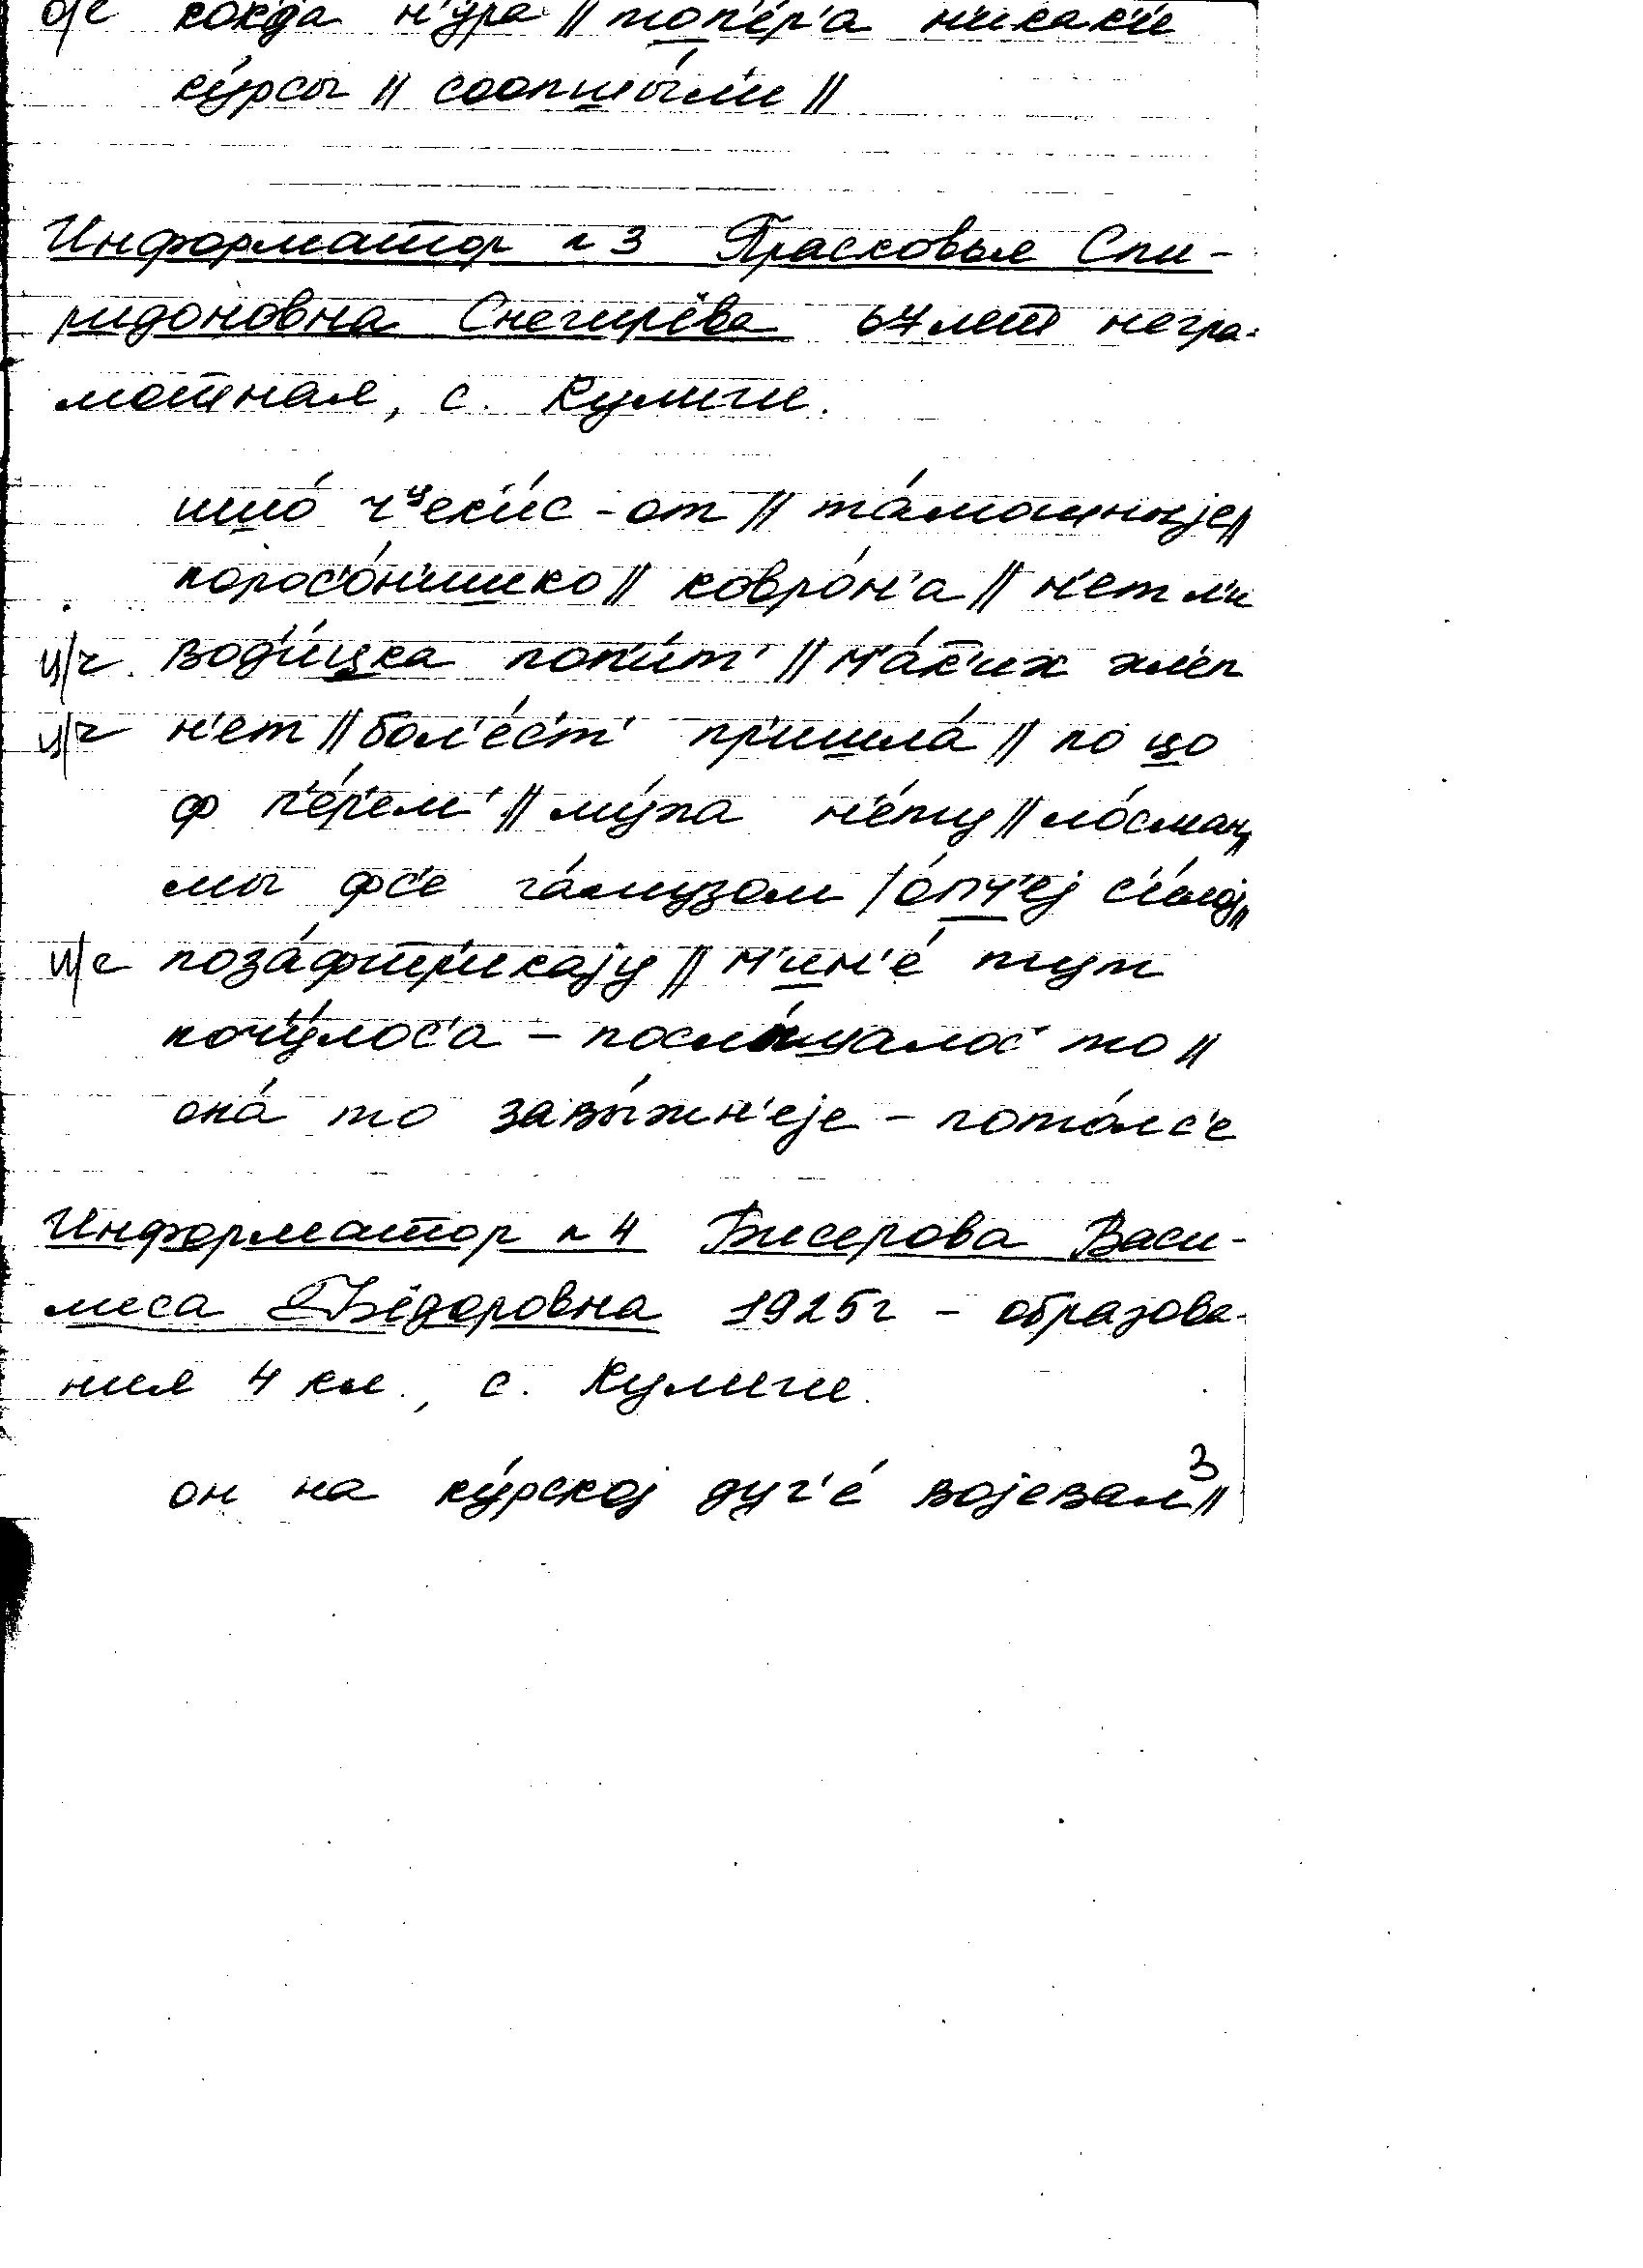 о/е кокда н'ура || топ'ер'а никак'ие
ку́рсы || соопшы́л'и ||
Информатор n 3 Прасковья Спи-
ридоновна Снегирёва 67 лет негра-
мотная, с. Кулиги.
што́ чᶣек'и́с - от || та́мошн'ије ||
порос'о́н'ишко || ковро́н'а || н'ет л'и
ц/ч вод'и́цка поп'и́т' || м'а́к'их хл'еп
ц/ч н'ет || бол'е́с'т' пришла́ || по цо
ф п'е́рем' || му́ха н'е́ту ||
мы фс'е га́музом / о́пч'еј с'и́лој ||
и/е поза́фтрикају || м'ин'е́ тут
почу́лос'а - послы́шалос' то ||
она́ то завы́жн'еје -
Информатор n 4 Бисерова Васи-
лиса Фёдоровна 1925г - образова-
ния 4 кл., с. Кулиги.
он на ку́рској дуг'е́ војевал ||
3